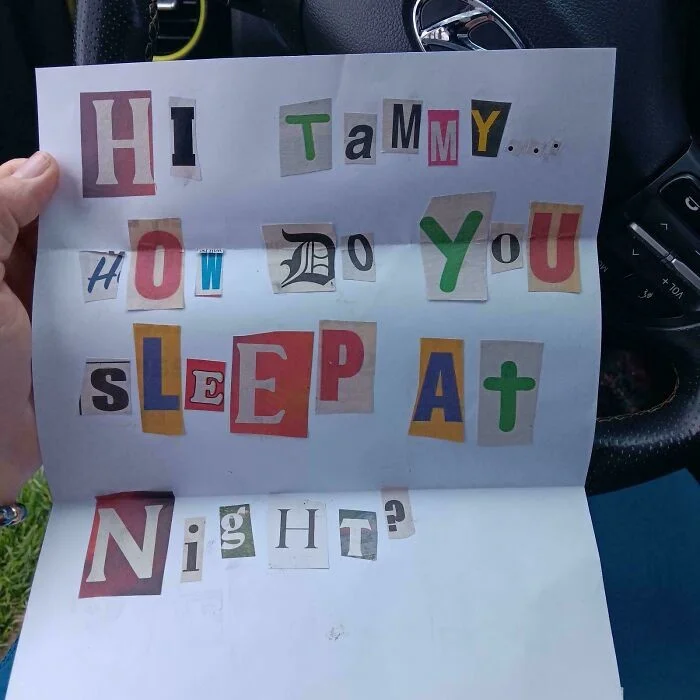 HI TaMMY...
HOW Do YoU
SLEEP At
NigHT?
VOL +